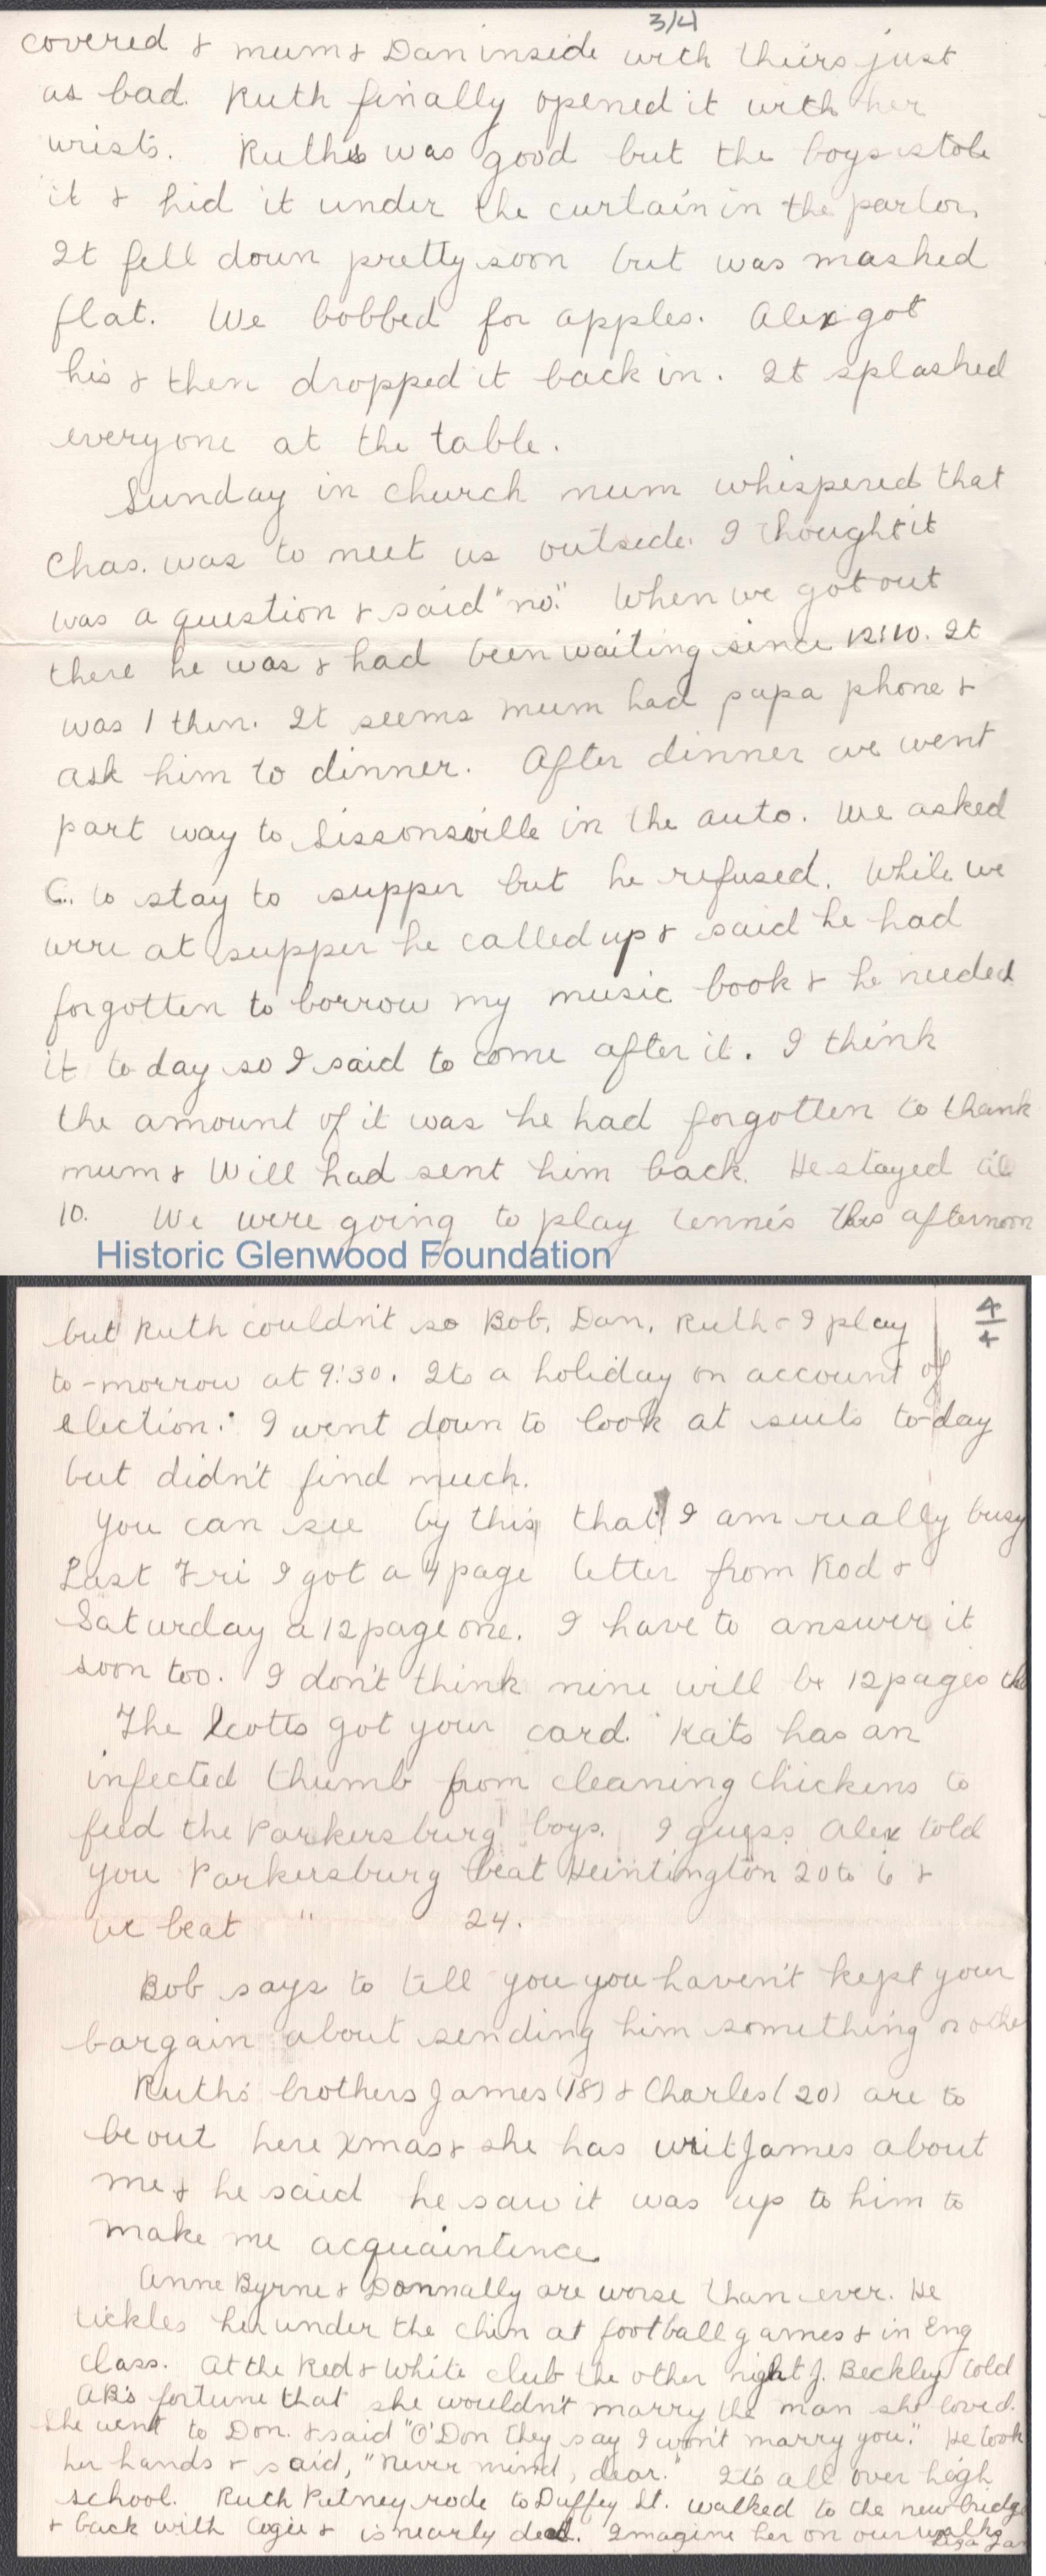 3/4
covered & mum & Dan inside with theirs just
as bad. Ruth finally opened it with her
wrists. Ruths was good but the boys stole
it & hid it under the curtain in the parlor.
It fell down pretty soon but was mashed
flat. We bobbed for apples. Alex got
his & then dropped it back in. It splashed
everyone at the table.
Sunday in church mum whispered that
Chas. was to meet us outside. I thought it
was a question & said "no." When we got out
there he was & had been waiting since 12:10. It
was 1 then. It seems mum had papa phone &
ask him to dinner. After dinner we went
part way to Sissonsville in the auto. We asked
C. to stay to supper but he refused. While we
were at supper he called up & said he had
forgotten to borrow my music book & he needed
it to day so I said to come after it. I think
the amount of it was he had forgotten to thank
mum & Will had sent him back. He stayed til
10. We were going to play tennis this afternoon
Historic Glenwood Foundation
4/4
but Ruth couldn't so Bob, Dan, Ruth & I play
to-morrow at 9:30. Its a holiday on account of
election. I went down to look at suits to-day
but didn't find much.
You can see by this that I am really busy
Last Fri I got a 4 page letter from Rod &
Saturday a 12 page one. I have to answer it
soon too. I don't think mine will be 12 pages tho
The Scotts got your card. Kats has an
infected thumb from cleaning chickens to
feed the Parkersburg boys. I guess Alex told
you Parkersburg beat Huntington 20 to 6 &
we beat " 24.
Bob says to tell you you haven't kept your
bargain about sending him something or other
Ruth's brothers James (18) & Charles (20) are to
be out here Xmas & she has writ James about
me & he said he saw it was up to him to
make me acquaintence.
Anne Byrne & Donnally are worse than ever. He
tickles her under the chin at football games & in Eng
Class. At the Red & White club the other night J. Beckley told
AB's fortune that she wouldn't marry the man she loved.
She went to Don. & said "O'Don they say I won't marry you." He took
her hands & said, "Never mind, dear." It's all over high
school. Ruth Putney rode to Duffey St. walked to the new bridge
& back with & is nearly dead. Imagine her on our walks